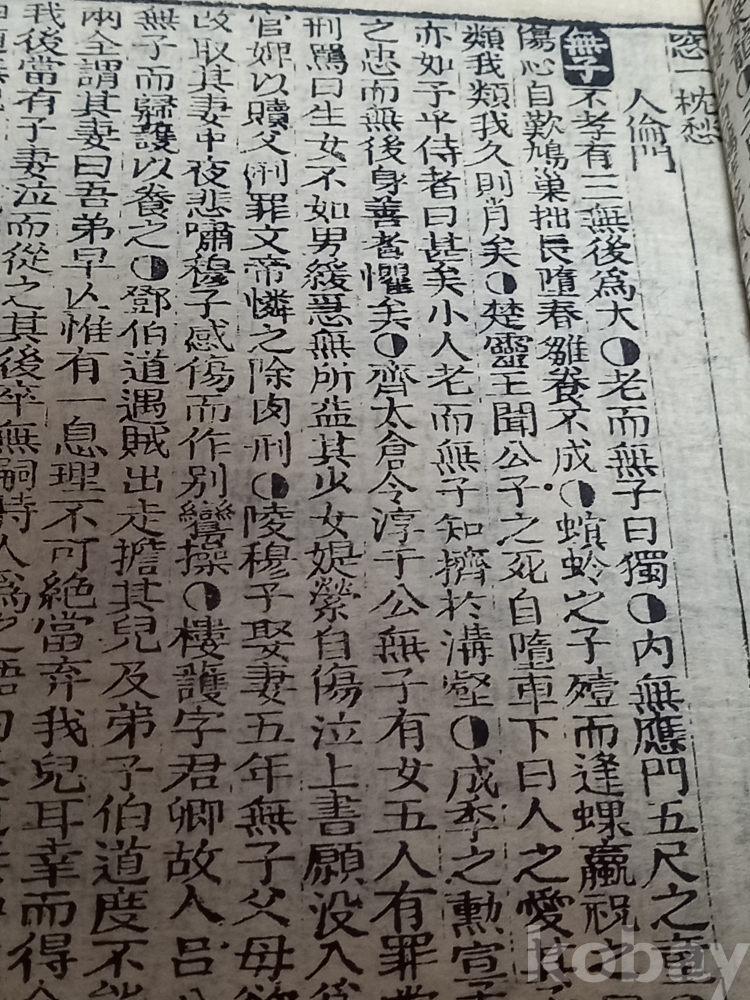 窓一枕愁
人倫門
無子 不孝有三無後爲大◑老而無子曰獨◑內無應門五尺之童
傷心自歎鳩巢拙長墮春雛養不成◑螟蛉之子殪而逢蜾蠃祝之
類我類我久則肖矣◑楚靈王聞公子之死自墮車下曰人之愛其子
亦如予乎侍者曰甚矣小人老而無子知擠於溝壑◑成季之勳宣孟
之忠而無後身善者懼矣◑齊太倉令淳于公無子有女五人有罪當
刑罵曰生女不如男緩急無所益其少女媞縈自傷泣上書願沒入爲
官婢以贖父刑罪文帝憐之除肉刑◑陵穆子娶妻五年無子父母欲
改取其妻中夜悲嘯穆子感傷而作別鸞操◑樓護字君卿故人呂公
無子而歸護以養之◑鄧伯道遇賊出走擔其兒及弟子伯道度不能
兩全謂其妻曰吾弟早亾惟有一息理不可絕當弃我兒耳幸而得
我後當有子妻泣而從之其後卒無嗣時人爲之語曰
kobay